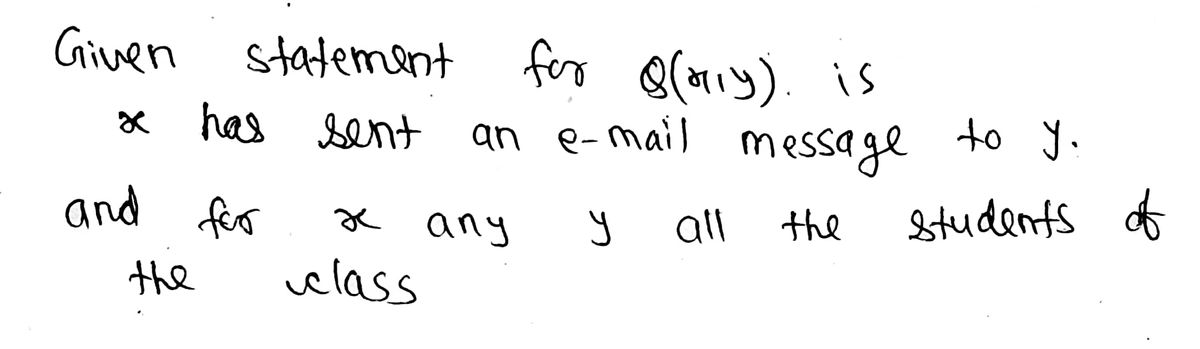 Given statement for Q(x,y). is
x has sent an e-mail message to y.
and for x any y all the students of
the class